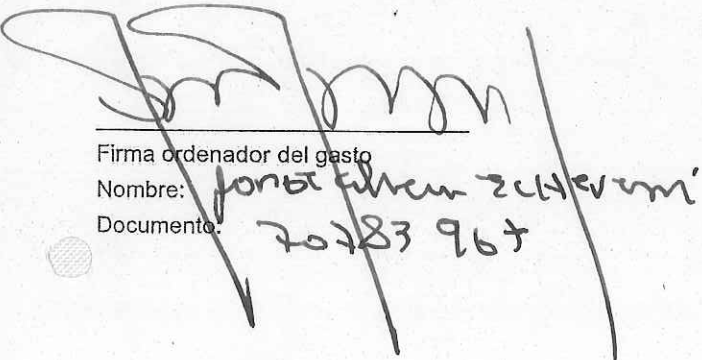 Firma ordenador del gasto
Nombre: Echeverri
Documento: 70783967